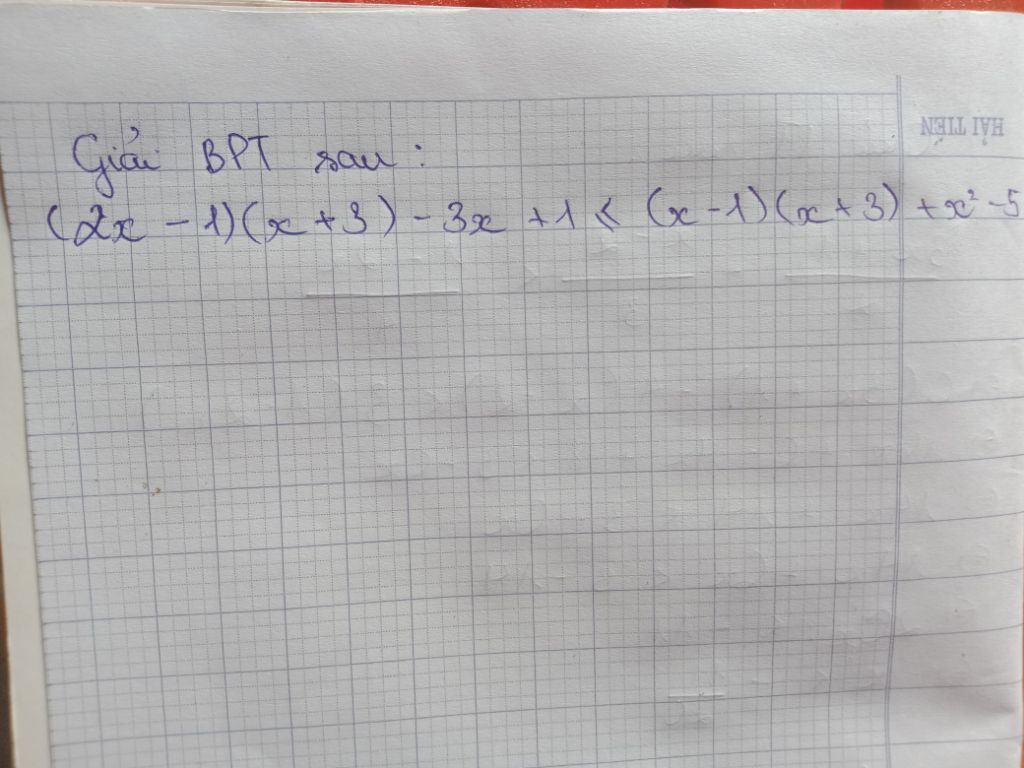 HẢI TIẾN
Giải BPT sau :
(2x - 1)(x + 3) - 3x + 1 < (x - 1)(x + 3) + x² - 5